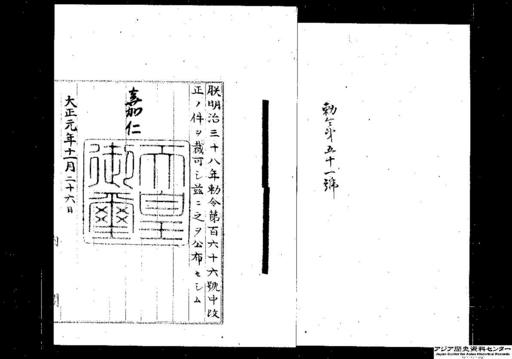 勅令第五十一號
朕明治三十八年勅令第百六十六號中改
正ノ件ヲ裁可シ茲ニ之ヲ公布セシム
嘉仁
天皇御璽
大正元年十一月二十六日
内閣
アジア歴史資料センター
Japan Center for Asian Historical Records